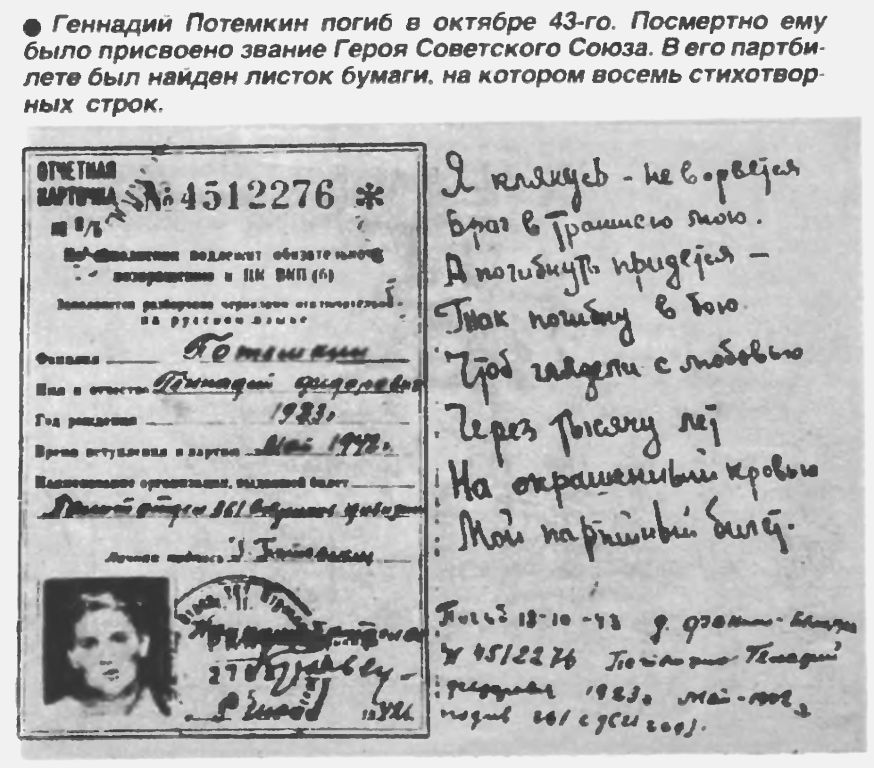 ● Геннадий Потемкин погиб в октябре 43-го. Посмертно ему
было присвоено звание Героя Советского Союза. В его партби-
лете был найден листок бумаги, на котором восемь стихотвор-
ных строк.
ОТЧЕТНАЯ
КАРТОЧКА № 4512276 *
подлежит обязательному
возвращению в ЦК ВКП(б)
Заполняется разборчиво чернилами исключительно
на русском языке
Фамилия Потемкин
Имя и отчество Геннадий Федорович
Год рождения 1923г
Время вступления в партию Май 1942г.
Наименование организации, выдавшей билет
Личная подпись
Я клянусь - не ворвется
Враг в траншею мою.
А погибнуть придется —
Так погибну в бою.
Чтоб глядели с любовью
Через тысячу лет
На окрашенный кровью
Мой партийный билет.
18-10-43 д.
№ 4512276 Геннадий
1923г. май